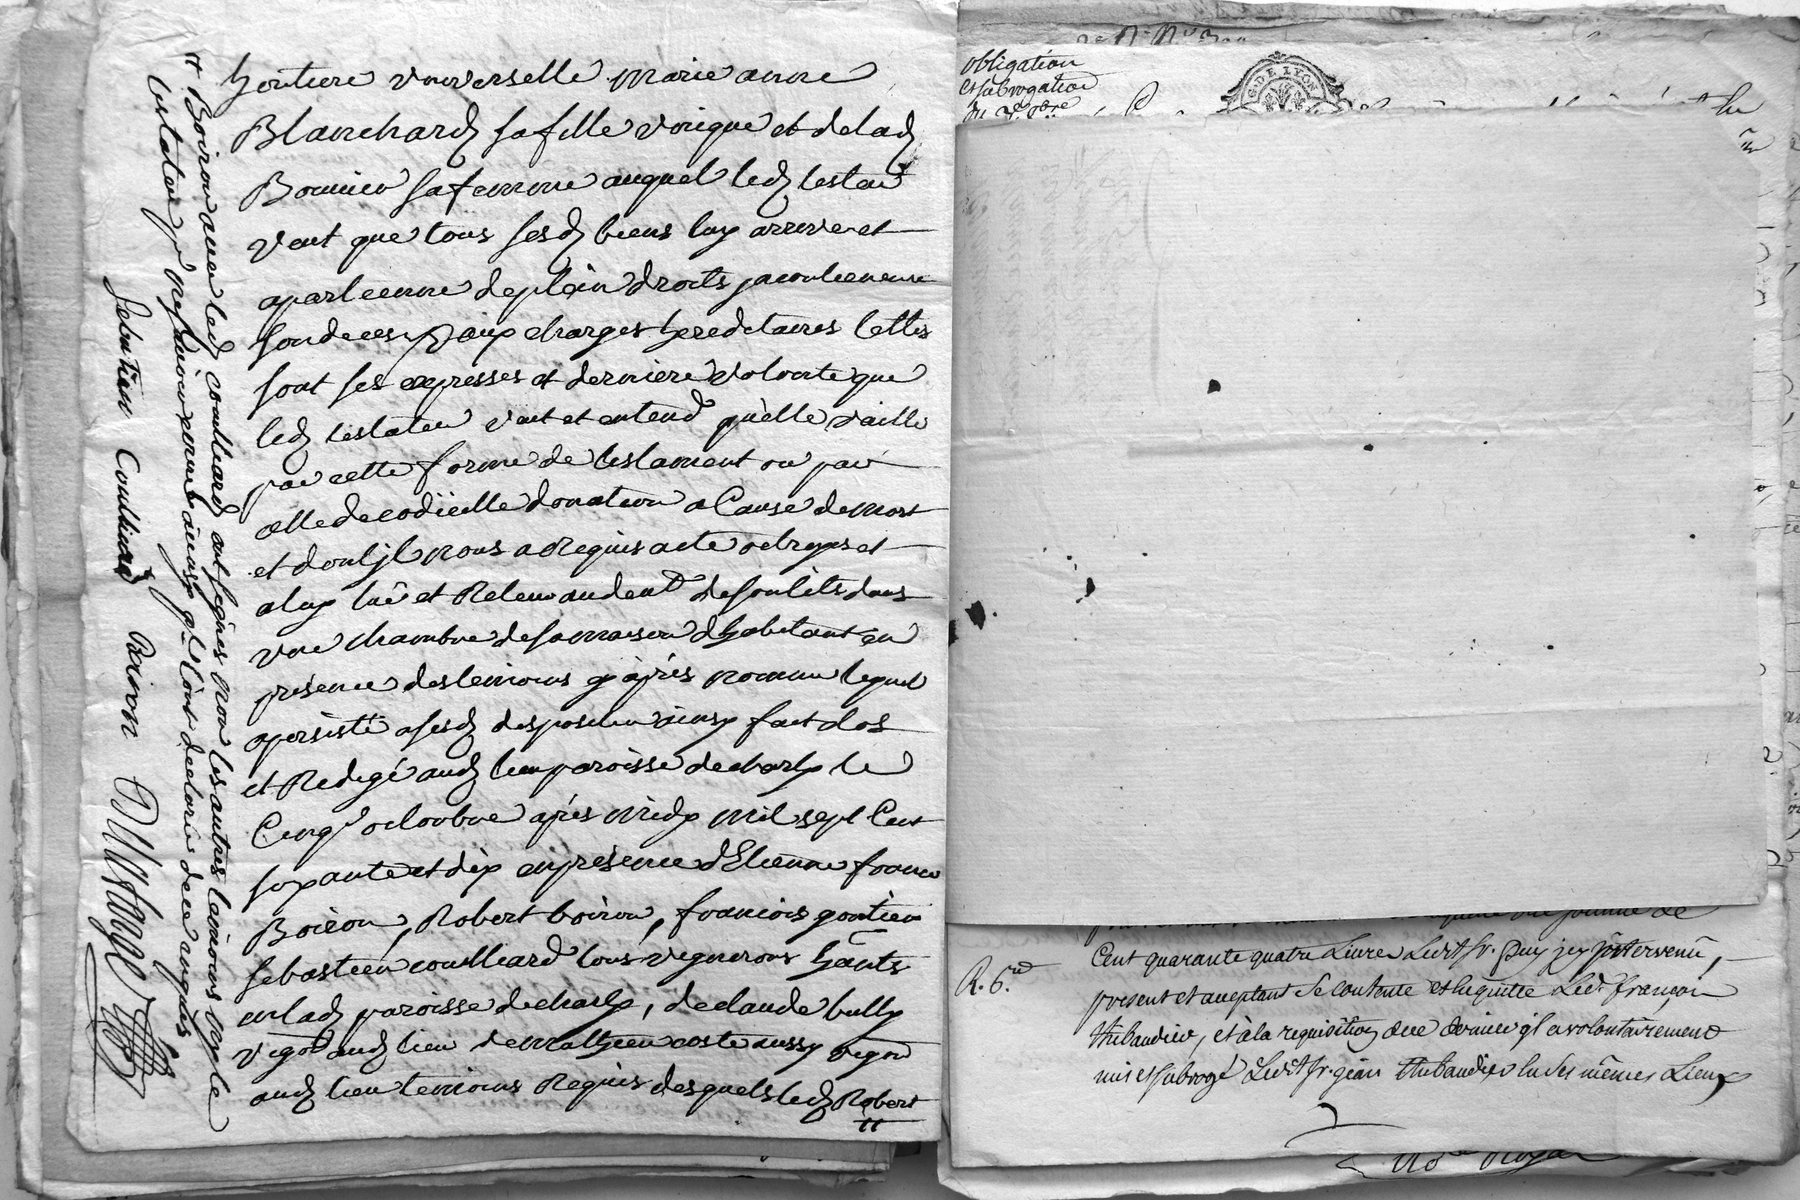 héritiere universelle marie anne
Blanchard sa fille unique et de lad
Bonnier sa femme auquel led testat
veut que tous sesd biens luy arrive et
apartienne de plein droits
aux charges hereditaires telles
sont ses expresses et derniere volonte que
led testateur veut et entend quelle vaille
par cette forme de testament ou par
celle de codicille donation a Cause de mort
et dont jl nous a Requis acte octroyé et
a luy lüe et Releu
une chambre de sa maison dhabitant en
présence des temoins cy après nommé lequel
a persisté a sesd ainsy fait clos
et Redigé aud lieu paroisse de charly le
Cinq octoubre après midy mil sept Cent
soixante et dix en présence d'Etienne
Boiron, Robert boiron, francois
sebastien coulliard tous vignerons hants
en lad paroisse de charly, de claude bully
vigon aud lieu de Matthieu coste aussy vigon
aud lieu temoins Requis desquels led Robert
tt
tt Boiron avec led coulliard ont signés non les autres temoins
testateur ainsy qls l'ont declaré de ce requis
Sebastien Coulliard Boiron
obligation
et subrogation
G. DE LYON
une somme de
Cent quarante quatre Livres Ledit sr. Puy jcy jntervenü,
R. 6.
present et acceptant se contente et le quitte Led. françois
thibaudier, et à la requisition de ce dernier jl a volontairement
mis et subrogé Ledit sr. jean thibaudier en ses mêmes Lieux